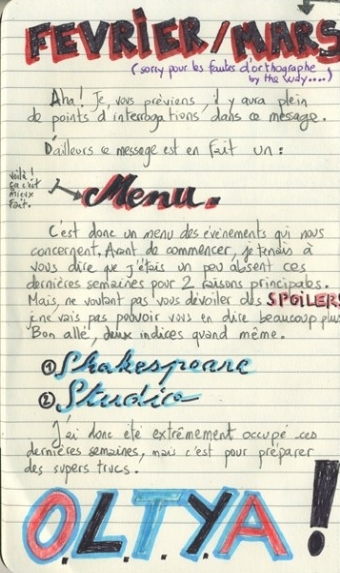 FEVRIER/MARS
(sorry pour les fautes d'orthographe
by the way....)
Aha! Je vous préviens, il y aura plein
de points d'interrogations dans ce message.
D'ailleurs ce message est en fait un :
voilà!
ça c'est
mieux
fait.
Menu.
C'est donc un menu des évènements qui nous
concernent. Avant de commencer, je tenais à
vous dire que j'étais un peu absent ces
dernières semaines pour 2 raisons principales.
Mais, ne voulant pas vous dévoiler des SPOILERS
je ne vais pas pouvoir vous en dire beaucoup plus
Bon allé, deux indices quand même.
① Shakespeare
② Studio
J'ai donc été extrêmement occupé ces
dernières semaines, mais c'est pour préparer
des supers trucs.
O.L.T.Y.A!